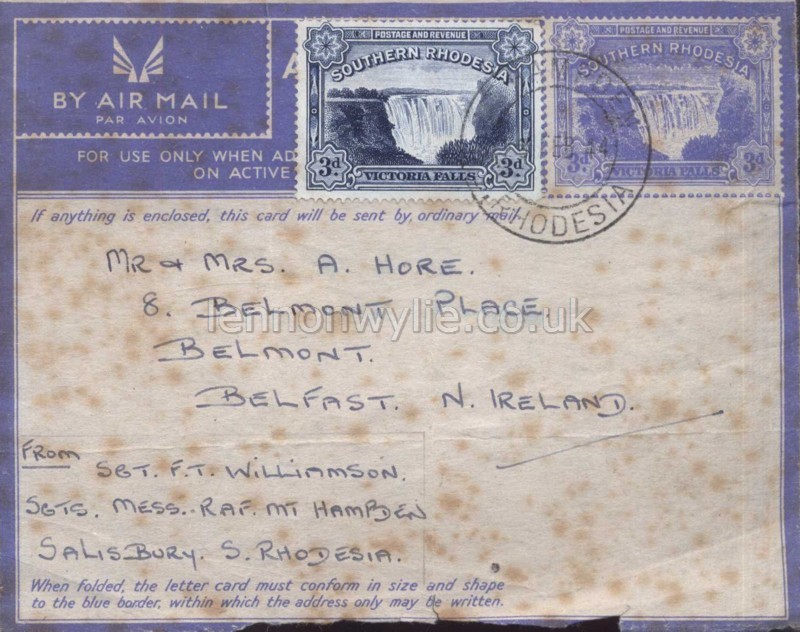 BY AIR MAIL
PAR AVION
POSTAGE AND REVENUE
SOUTHERN RHODESIA
3d 3d
VICTORIA FALLS
POSTAGE AND REVENUE
SOUTHERN RHODESIA
3d 3d
VICTORIA FALLS
RHODESIA
FOR USE ONLY WHEN AD
ON ACTIVE
If anything is enclosed, this card will be sent by ordinary mail.
MR & MRS. A. HORE.
8. BELMONT PLACE
lennonwylie.co.uk
BELMONT.
BELFAST. N. IRELAND.
FROM
SGT. F.T. WILLIAMSON.
SGTS. MESS. RAF. MT HAMPDEN
SALISBURY. S. RHODESIA.
When folded, the letter card must conform in size and shape
to the blue border, within which the address only may be written.